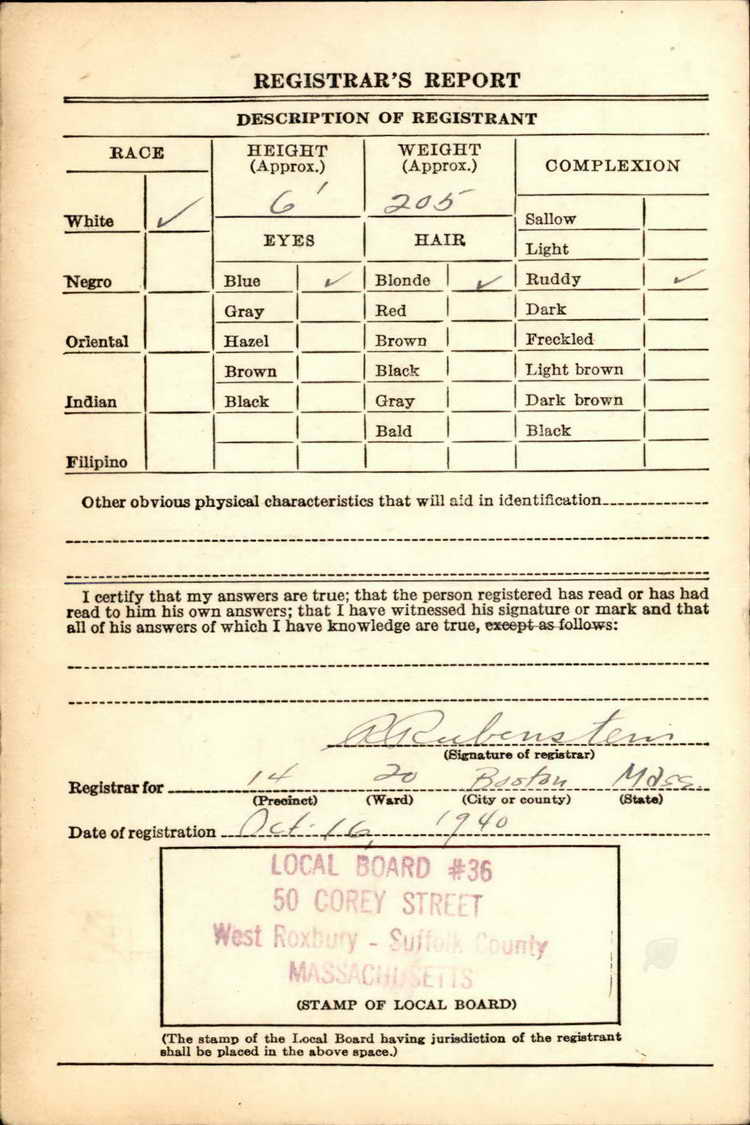 REGISTRAR'S REPORT
DESCRIPTION OF REGISTRANT
RACE
HEIGHT (Approx.)
WEIGHT (Approx.)
COMPLEXION
6'
205
White ✓
Sallow
EYES
HAIR
Light
Negro
Blue ✓
Blonde ✓
Ruddy ✓
Gray
Red
Dark
Oriental
Hazel
Brown
Freckled
Brown
Black
Light brown
Indian
Black
Gray
Dark brown
Bald
Black
Filipino
Other obvious physical characteristics that will aid in identification
I certify that my answers are true; that the person registered has read or has had
read to him his own answers; that I have witnessed his signature or mark and that
all of his answers of which I have knowledge are true, except as follows:
Rubenstein
(Signature of registrar)
Registrar for 14 20 Boston Mass.
(Precinct) (Ward) (City or county) (State)
Date of registration Oct. 16, 1940
LOCAL BOARD #36
50 COREY STREET
West Roxbury - Suffolk County
MASSACHUSETTS
(STAMP OF LOCAL BOARD)
(The stamp of the Local Board having jurisdiction of the registrant
shall be placed in the above space.)